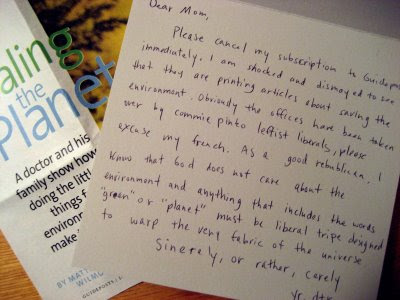 aling
the
Planet
A doctor and his
family show how
doing the littl
things f
environ
make
BY MATT
WILMO
GUIDEPOSTS
Dear Mom,
Please cancel my subscription to Guidepo
immediately. I am shocked and dismayed to see
that they are printing articles about saving the
environment. Obviously the offices have been taken
over by commie pinko leftist liberals, please
excuse my french. As a good republican, I
know that God does not care about the
environment and anything that includes the words
"green" or "planet" must be liberal tripe designed
to warp the very fabric of the universe
Sincerely, or rather, Carely
Yr.